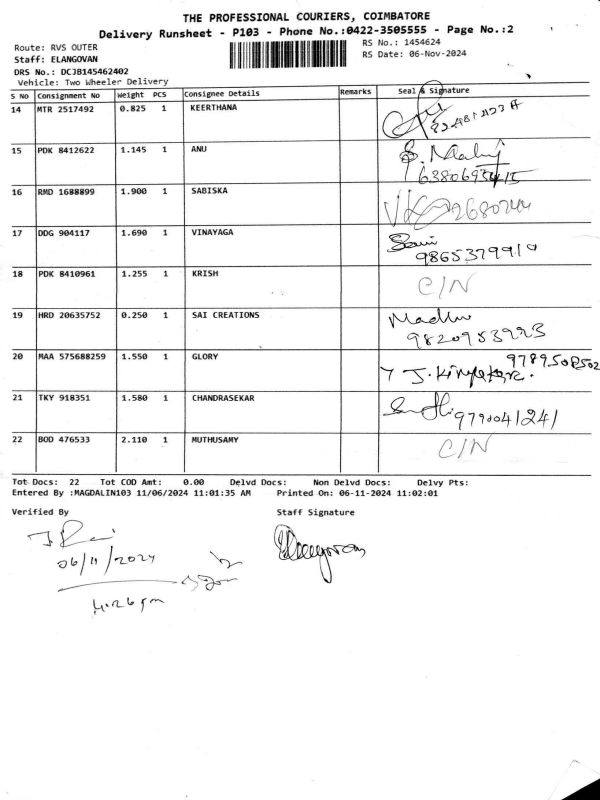 THE PROFESSIONAL COURIERS, COIMBATORE
Delivery Runsheet - P103 - Phone No.:0422-3505555 - Page No.:2
Route: RVS OUTER
RS No.: 1454624
Staff: ELANGOVAN
RS Date: 06-Nov-2024
DRS No.: DCJB145462402
Vehicle: Two Wheeler Delivery
S No Consignment No Weight PCS Consignee Details Remarks Seal & Signature
14 MTR 2517492 0.825 1 KEERTHANA
15 PDK 8412622 1.145 1 ANU
16 RMD 1688899 1.900 1 SABISKA
17 DDG 904117 1.690 1 VINAYAGA
9865379919
18 PDK 8410961 1.255 1 KRISH C/N
19 HRD 20635752 0.250 1 SAI CREATIONS Madhu
9820953223
20 MAA 575688259 1.550 1 GLORY
21 TKY 918351 1.580 1 CHANDRASEKAR 9790041241
22 BOD 476533 2.110 1 MUTHUSAMY C/N
Tot Docs: 22 Tot COD Amt: 0.00 Delvd Docs: Non Delvd Docs: Delvy Pts:
Entered By :MAGDALIN103 11/06/2024 11:01:35 AM Printed On: 06-11-2024 11:02:01
Verified By Staff Signature
06/11/2024
4.26 pm